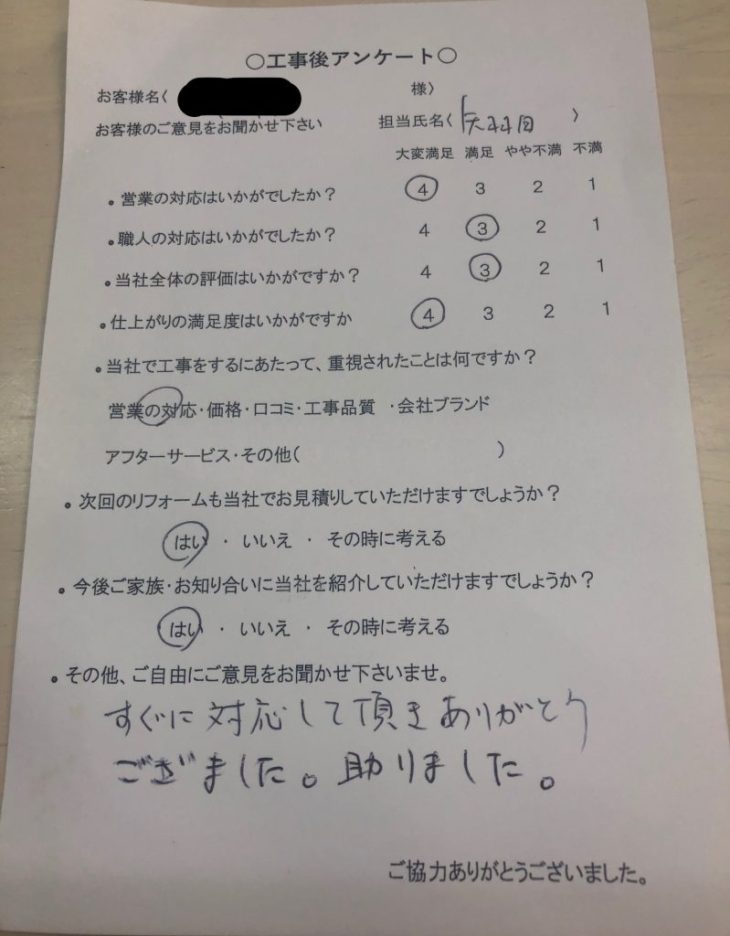 ○工事後アンケート○
お客様名〈 様〉
お客様のご意見をお聞かせ下さい 担当氏名〈 〉
大変満足 満足 やや不満 不満
・営業の対応はいかがでしたか? 4 3 2 1
・職人の対応はいかがでしたか? 4 3 2 1
・当社全体の評価はいかがですか? 4 3 2 1
・仕上がりの満足度はいかがですか 4 3 2 1
・当社で工事をするにあたって、重視されたことは何ですか?
営業の対応・価格・口コミ・工事品質 ・会社ブランド
アフターサービス・その他( )
・次回のリフォームも当社でお見積りしていただけますでしょうか?
はい ・ いいえ ・ その時に考える
・今後ご家族・お知り合いに当社を紹介していただけますでしょうか?
はい ・ いいえ ・ その時に考える
・その他、ご自由にご意見をお聞かせ下さいませ。
すぐに対応して頂きありがとう
ござぎました。助りました。
ご協力ありがとうございました。